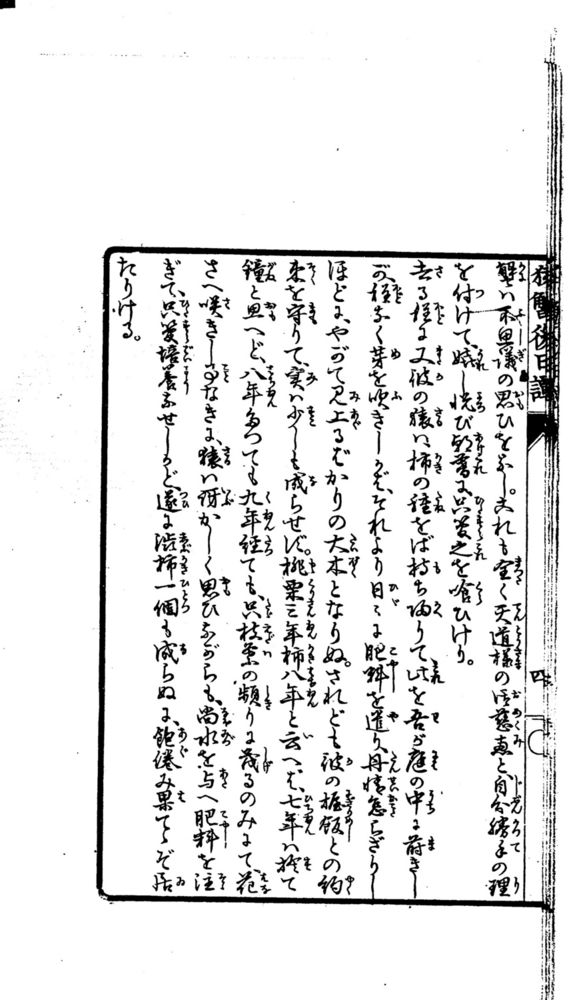 猿蟹後日譚
四
蟹ハ不思議の思ひをなし。これも全く天道様の御慈恵と、自分勝手の理
を付けて、嬉し悦び朝暮に只管之を喰ひけり。
去る程に又彼の猿ハ柿の種をば持ち帰りて此を吾が庭の中に蒔きし
が、程なく芽を吹きしかバ、それより日々に肥料を遣り、丹情怠らざりし
ほどに、やがて見上るばかりの大木となりぬ。されども彼の握飯との約
束を守りて、実ハ少しも成らせず。桃栗三年柿八年と云へバ、七年ハ捨て
鐘と思へど、八年たつても九年経ても、只枝葉の頻りに茂るのみにて、花
さへ咲きし事なきに、猿ハ訝かしく思ひながらも、尚水を与へ肥料を注
ぎて、只管培養なせしかど、遂に渋柿一個も成らぬに、飽倦み果てゝぞ居
たりける。